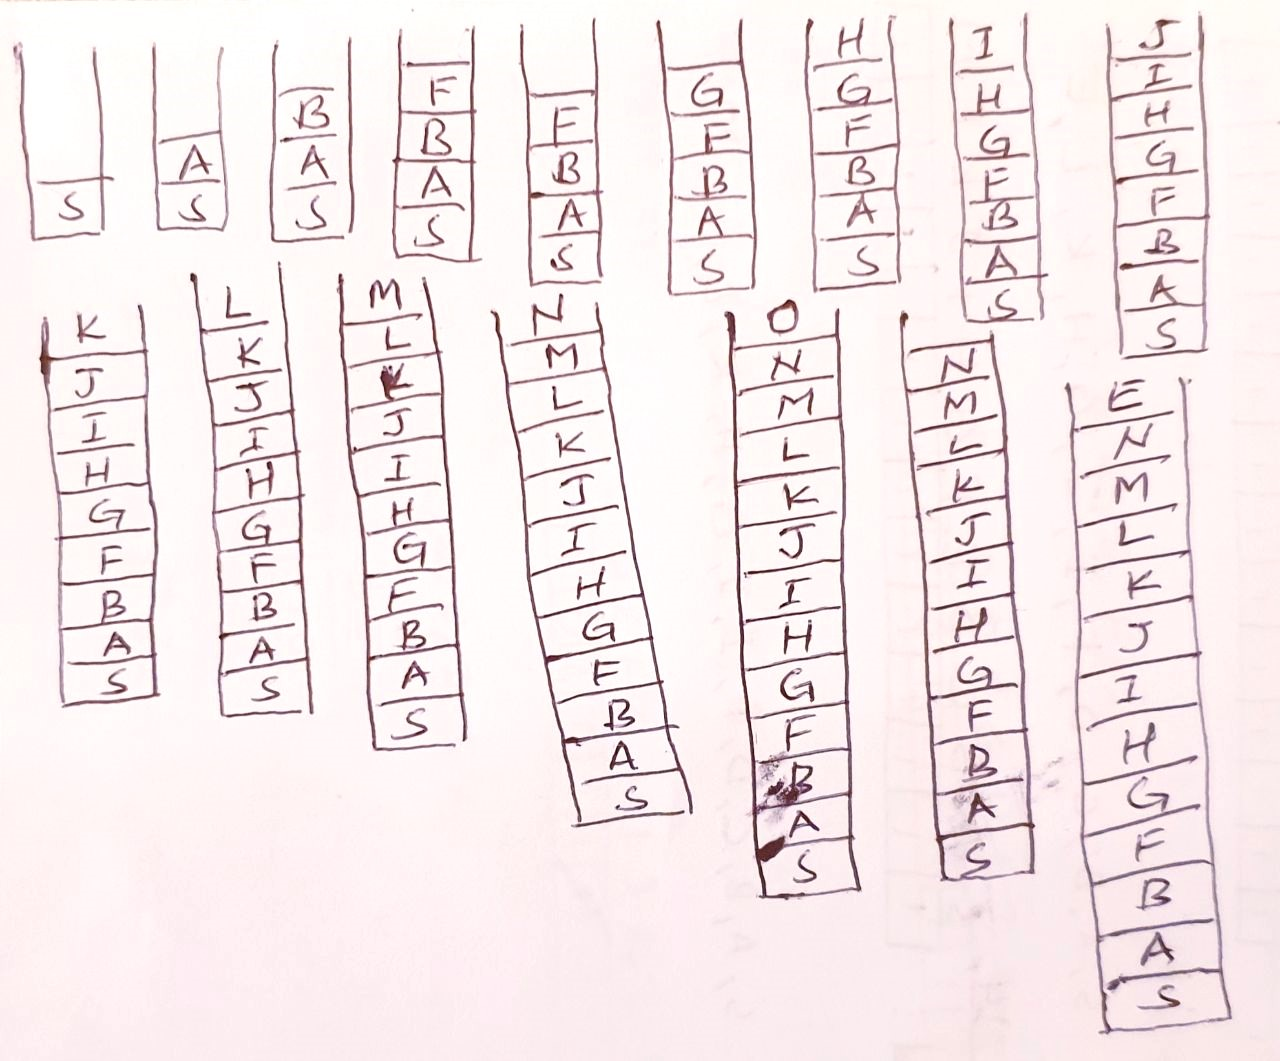 S
A
S
B
A
S
F
B
A
S
F
B
A
S
G
F
B
A
S
H
G
F
B
A
S
I
H
G
F
B
A
S
J
I
H
G
F
B
A
S
K
J
I
H
G
F
B
A
S
L
K
J
I
H
G
F
B
A
S
M
L
K
J
I
H
G
F
B
A
S
N
M
L
K
J
I
H
G
F
B
A
S
O
N
M
L
K
J
I
H
G
F
B
A
S
N
M
L
K
J
I
H
G
F
B
A
S
E
N
M
L
K
J
I
H
G
F
B
A
S